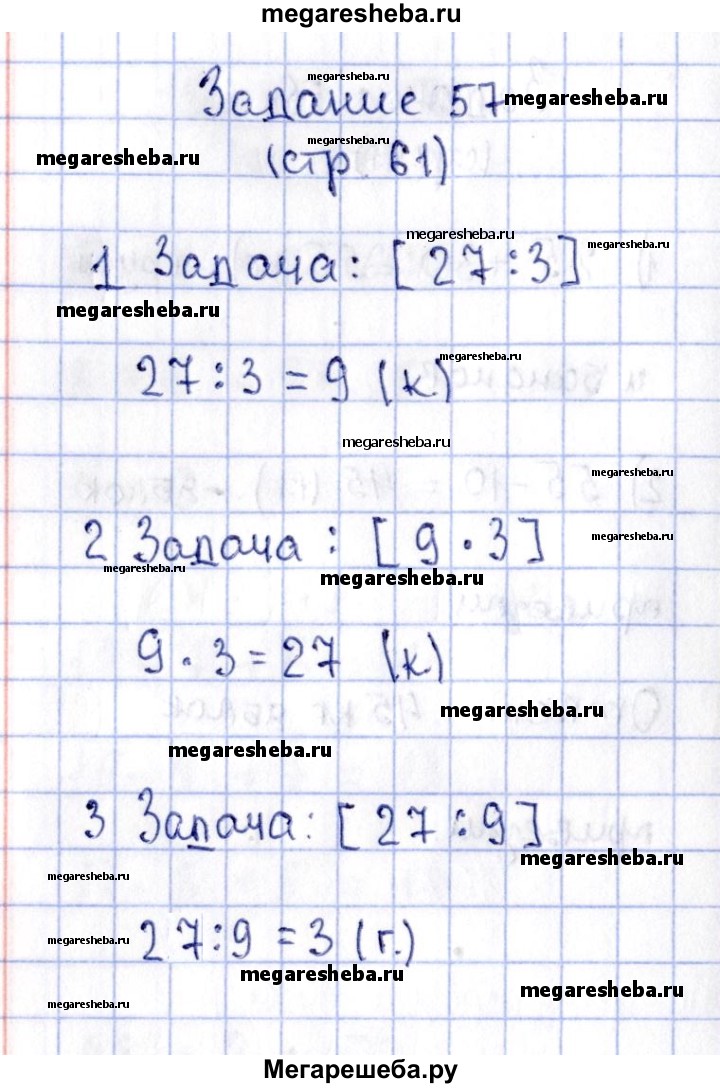 megaresheba.ru
megaresheba.ru
Задание 57 megaresheba.ru
megaresheba.ru
megaresheba.ru (стр 61)
megaresheba.ru
1 Задача: [27:3] megaresheba.ru
megaresheba.ru
27:3=9 (к.) megaresheba.ru
megaresheba.ru
megaresheba.ru
2 Задача: [9·3] megaresheba.ru
megaresheba.ru megaresheba.ru
9·3=27 (к.)
megaresheba.ru
megaresheba.ru
3 Задача: [27:9]
megaresheba.ru
megaresheba.ru
megaresheba.ru 27:9=3 (г.)
megaresheba.ru
megaresheba.ru
megaresheba.ru
Мегарешеба.ру